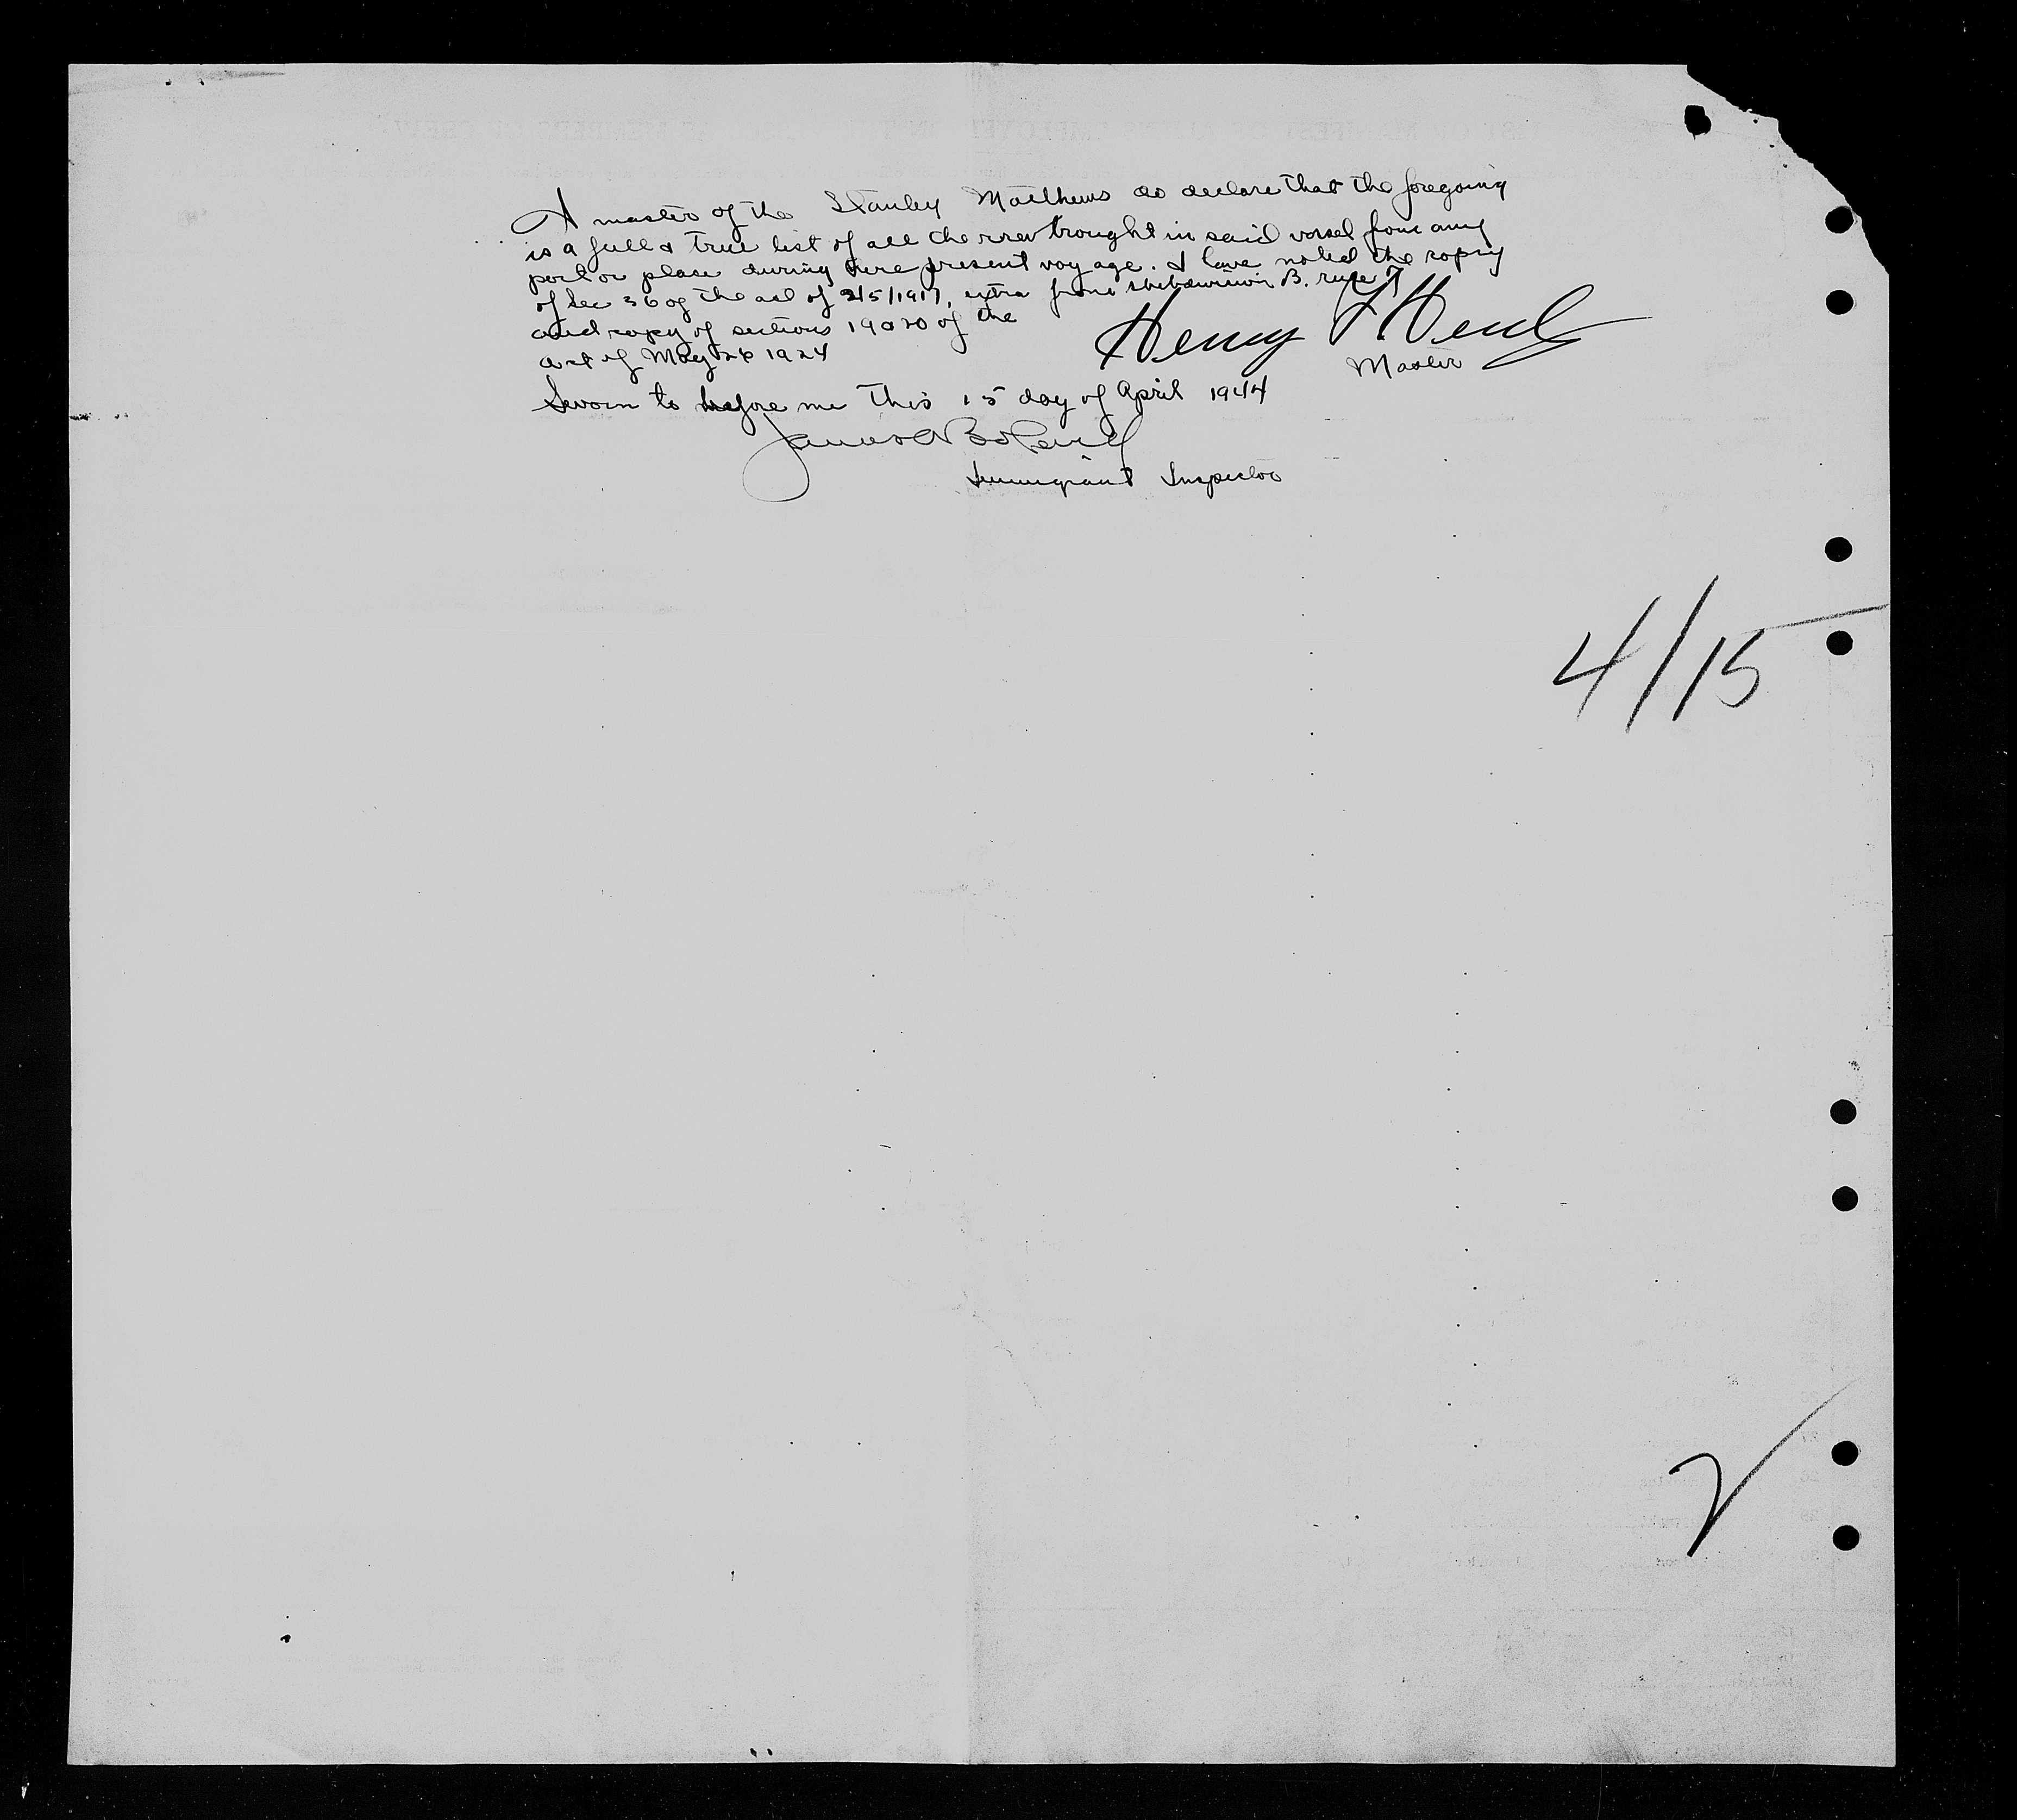 I master of the Stanley Matthews do declare that the foregoing
is a full & true list of all the crew brought in said vessel from any
port or place during here present voyage. I have noted the copy
of Sec 36 of the act of 2/5/1917, extra from subdivision B. rule 7
and copy of sections 19 & 20 of the
act of May 26 1924
Henry F
Master
Sworn to before me this 15 day of April 1944
Immigrant Inspector
4/15
2